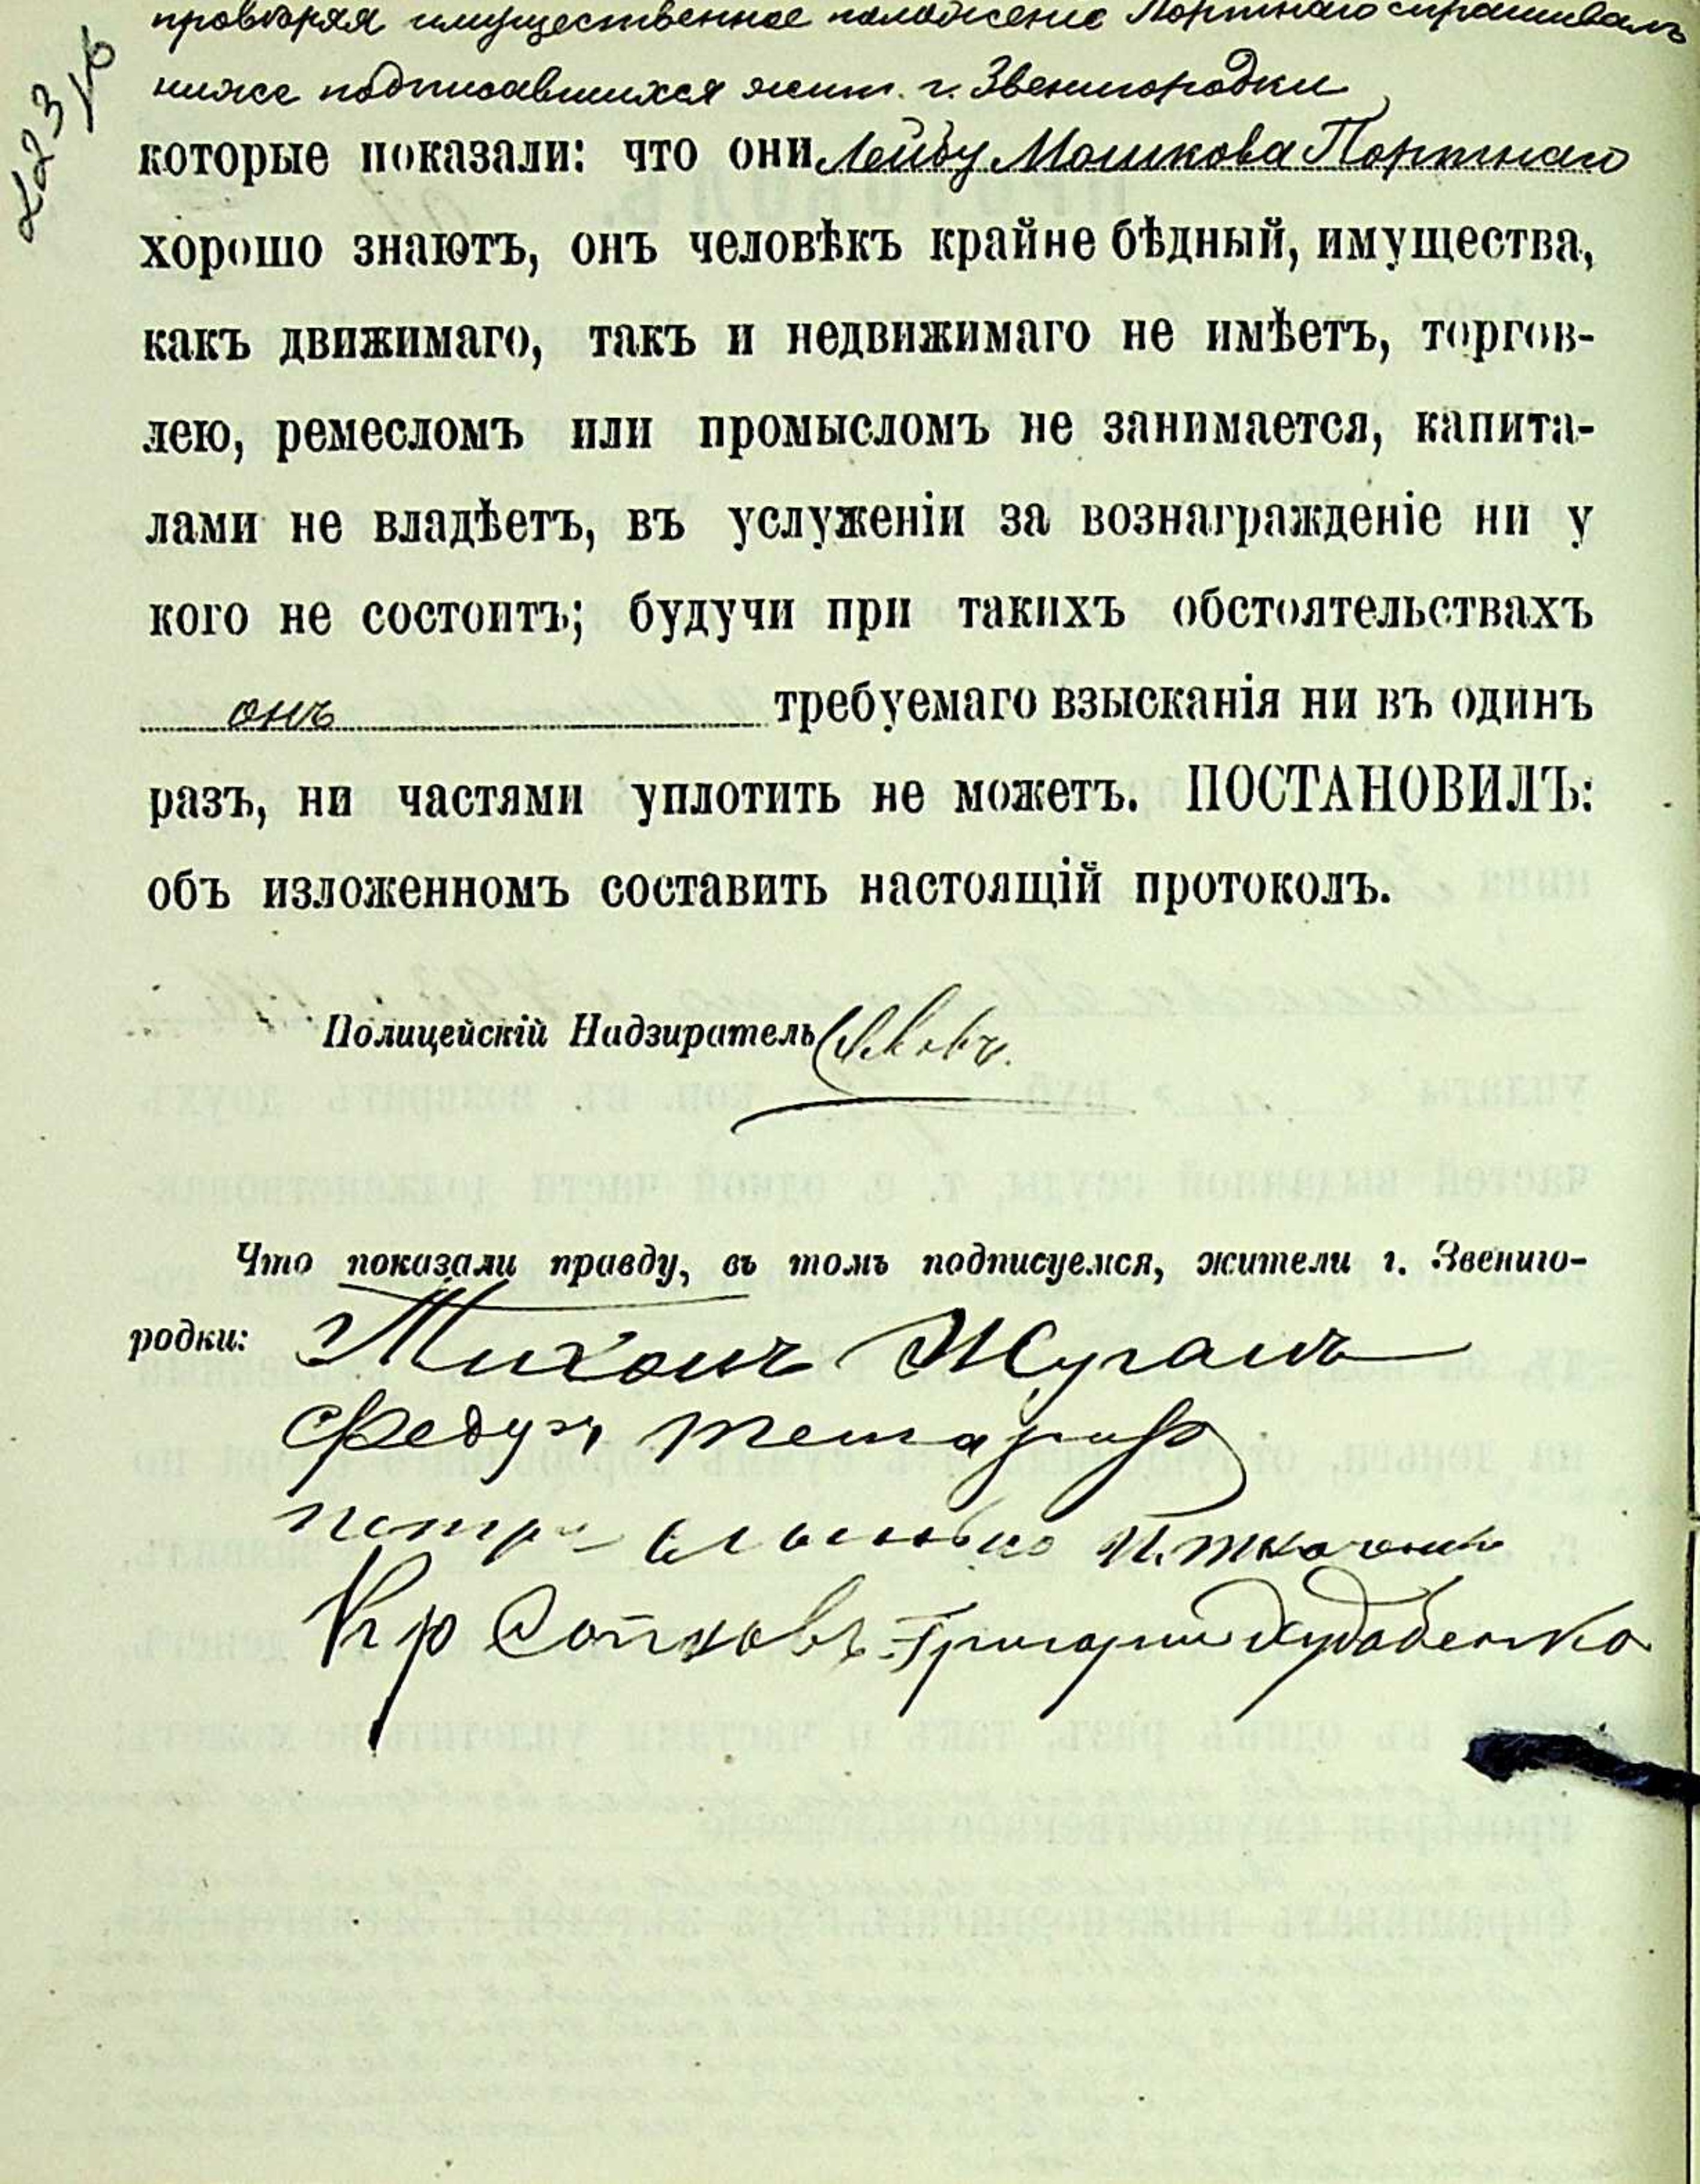 провѣряя имущественное положеніе Портнаго спрашивалъ
ниже подписавшихся жит. г. Звенигородки
которые показали: что они Лейбу Мошкова Портнаго
хорошо знаютъ, онъ человѣкъ крайне бѣдный, имущества,
какъ движимаго, такъ и недвижимаго не имѣетъ, торгов-
лею, ремесломъ или промысломъ не занимается, капита-
лами не владѣетъ, въ услуженіи за вознагражденіе ни у
кого не состоитъ; будучи при такихъ обстоятельствахъ
онъ требуемаго взысканія ни въ одинъ
разъ, ни частями уплотить не можетъ. ПОСТАНОВИЛЪ:
объ изложенномъ составить настоящій протоколъ.
Полицейскій Надзиратель
Что показали правду, въ томъ подписуемся, жители г. Звениго-
родки: Тихонъ Жуганъ
Федур
петро
Григорий Худобенко